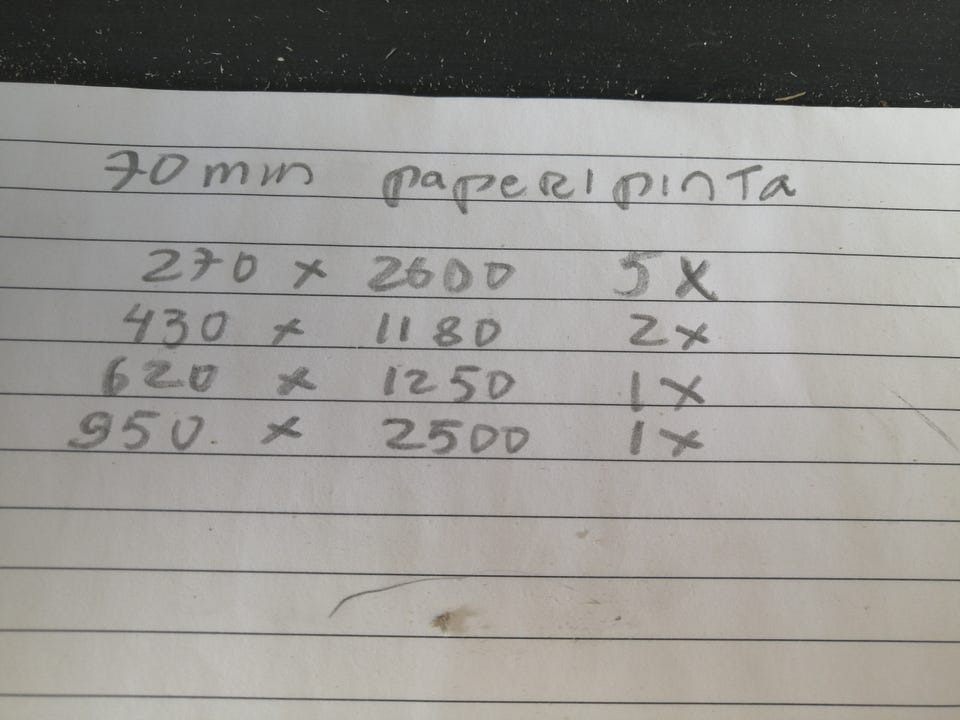 70mm paperipinta
270 x 2600 5x
430 x 1180 2x
620 x 1250 1x
950 x 2500 1x